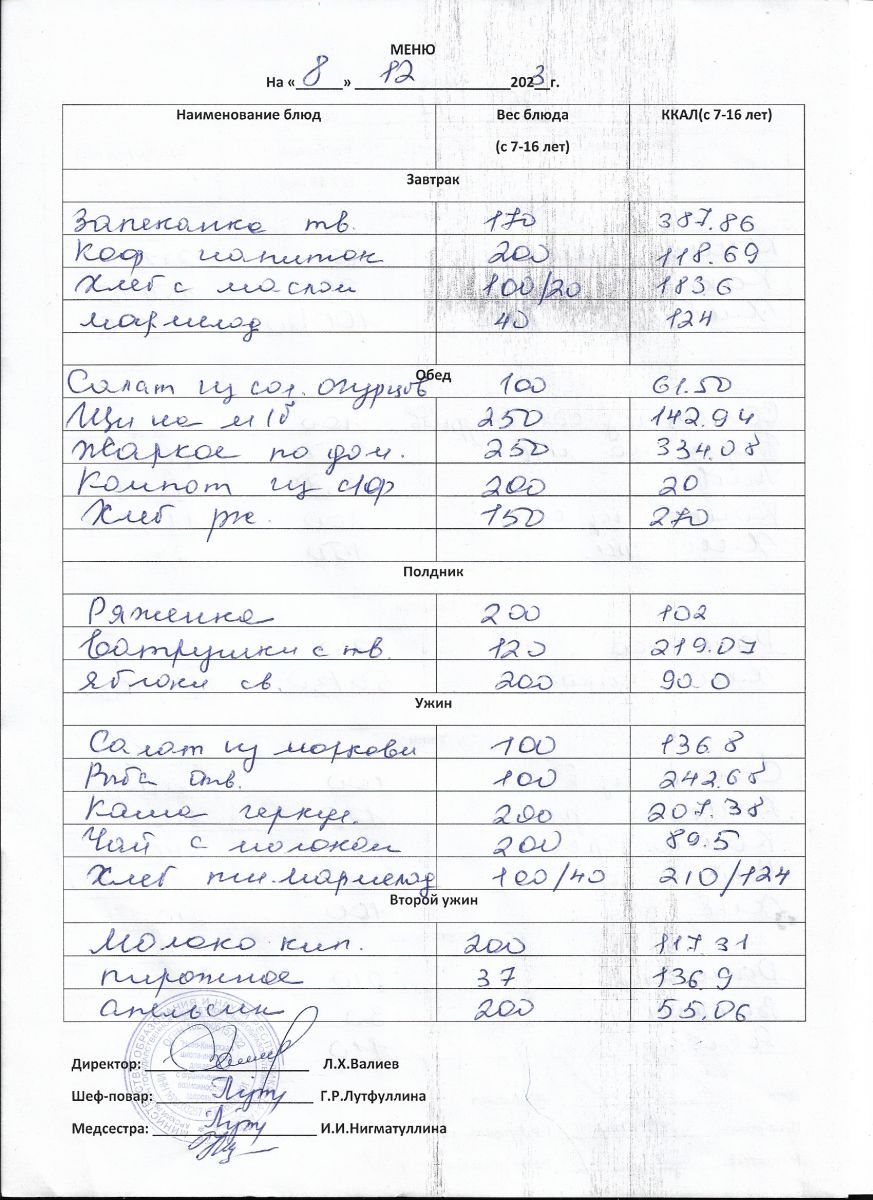 МЕНЮ
На « 8 » 12 2023 г.
Наименование блюд Вес блюда (с 7-16 лет) ККАЛ(с 7-16 лет)
Завтрак
Запеканка тв. 170 387.86
Коф напиток 200 118.69
Хлеб с маслом 100/20 183.6
мармелад 40 124
Обед
Салат из сол. огурцов 100 61.50
Щи на м/б 250 142.94
Жаркое по дом. 250 334.08
Компот из с/ф 200 20
Хлеб рж. 150 270
Полдник
Ряженка 200 102
Ватрушки с тв. 120 219.07
Яблоки св. 200 90.0
Ужин
Салат из моркови 100 136.8
Рыба отв. 100 242.68
Каша геркул. 200 207.38
Чай с молоком 200 89.5
Хлеб пш. мармелад 100/40 210/124
Второй ужин
Молоко кип. 200 117.31
пирожное 37 136.9
апельсин 200 55.06
Директор: Л.Х.Валиев
Шеф-повар: Г.Р.Лутфуллина
Медсестра: И.И.Нигматуллина